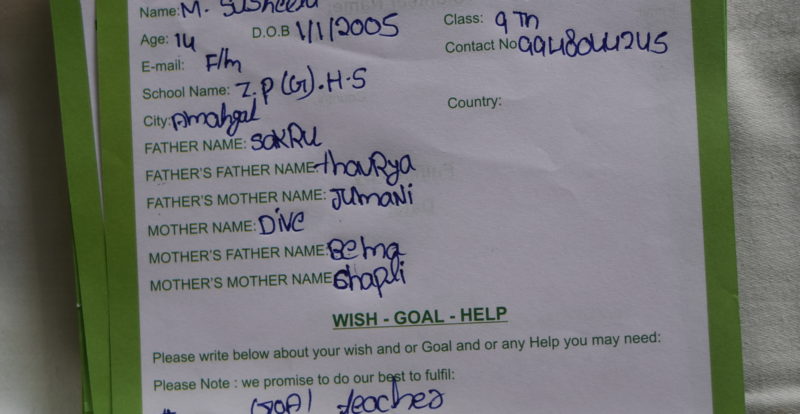 Name: M. Susheela
Age: 14 D.O.B 1/1/2005 Class: 9 Th
E-mail: F/m Contact No 9948044245
School Name: Z.P (G).H-S
City: Amangal Country:
FATHER NAME: SAKRU
FATHER'S FATHER NAME: thauRya
FATHER'S MOTHER NAME: JUMANI
MOTHER NAME: Dive
MOTHER'S FATHER NAME: Bema
MOTHER'S MOTHER NAME
WISH - GOAL - HELP
Please write below about your wish and or Goal and or any Help you may need:
Please Note : we promise to do our best to fulfil:
GOAl teacher